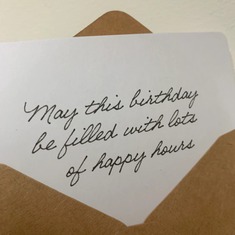 May this birthday
be filled with lots
of happy hours